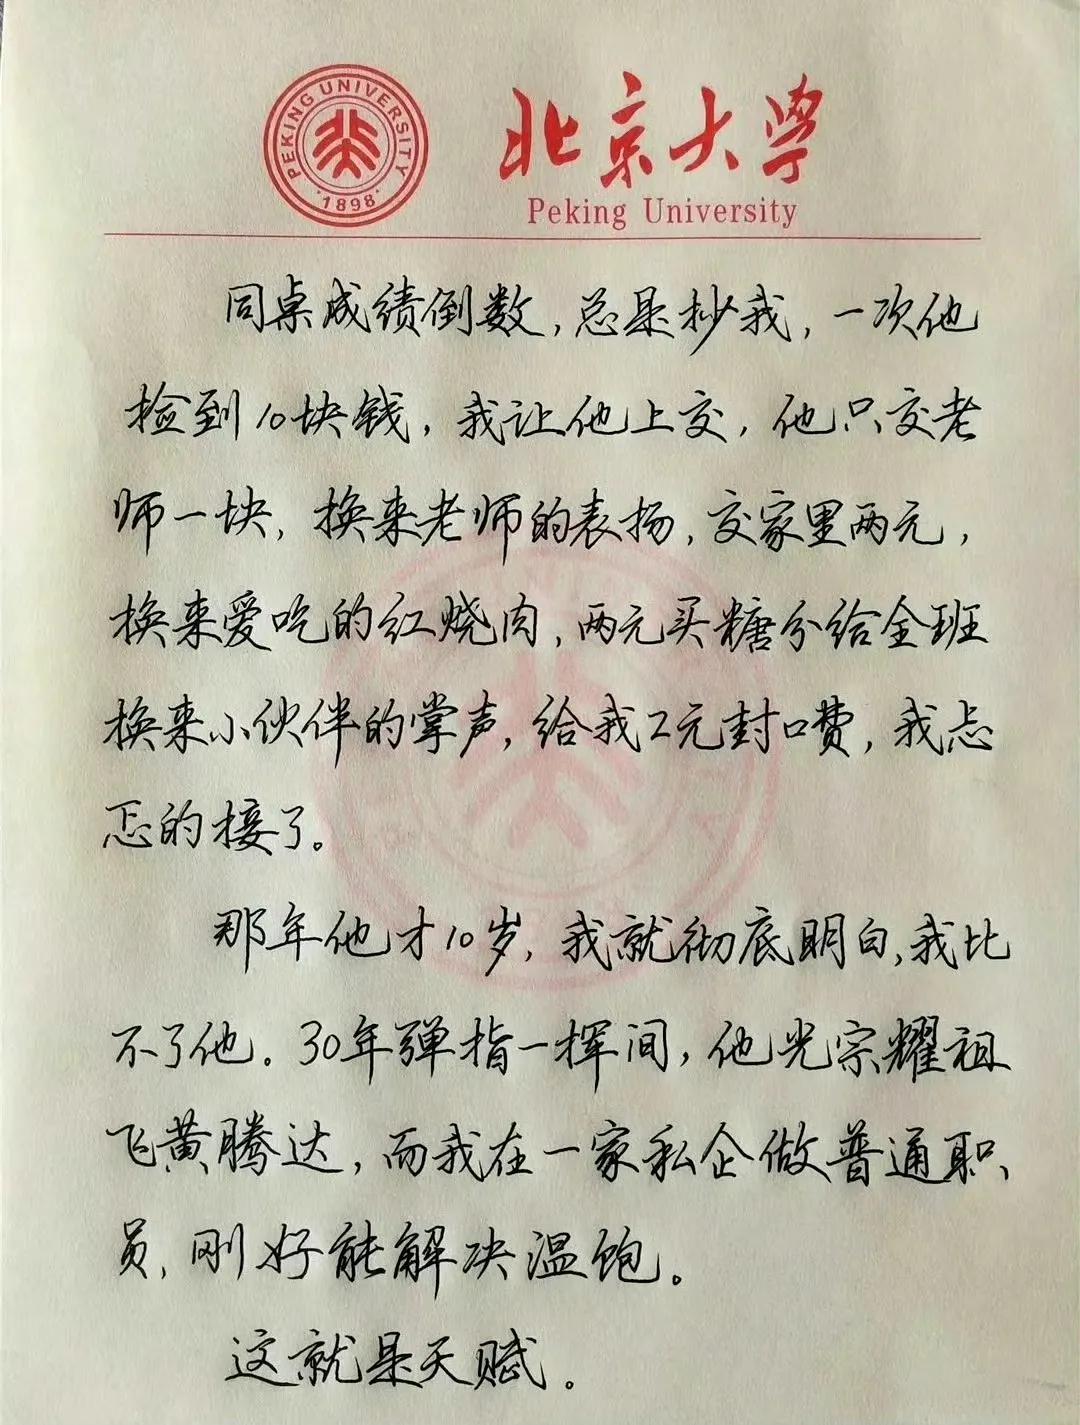 PEKING UNIVERSITY
·1898·
北京大学
Peking University
同桌成绩倒数，总是抄我，一次他
捡到10块钱，我让他上交，他只交老
师一块，换来老师的表扬，交家里两元，
换来爱吃的红烧肉，两元买糖分给全班
换来小伙伴的掌声，给我2元封口费，我忐
忑的接了。
那年他才10岁，我就彻底明白，我比
不了他。30年弹指一挥间，他光宗耀祖
飞黄腾达，而我在一家私企做普通职
员，刚好能解决温饱。
这就是天赋。